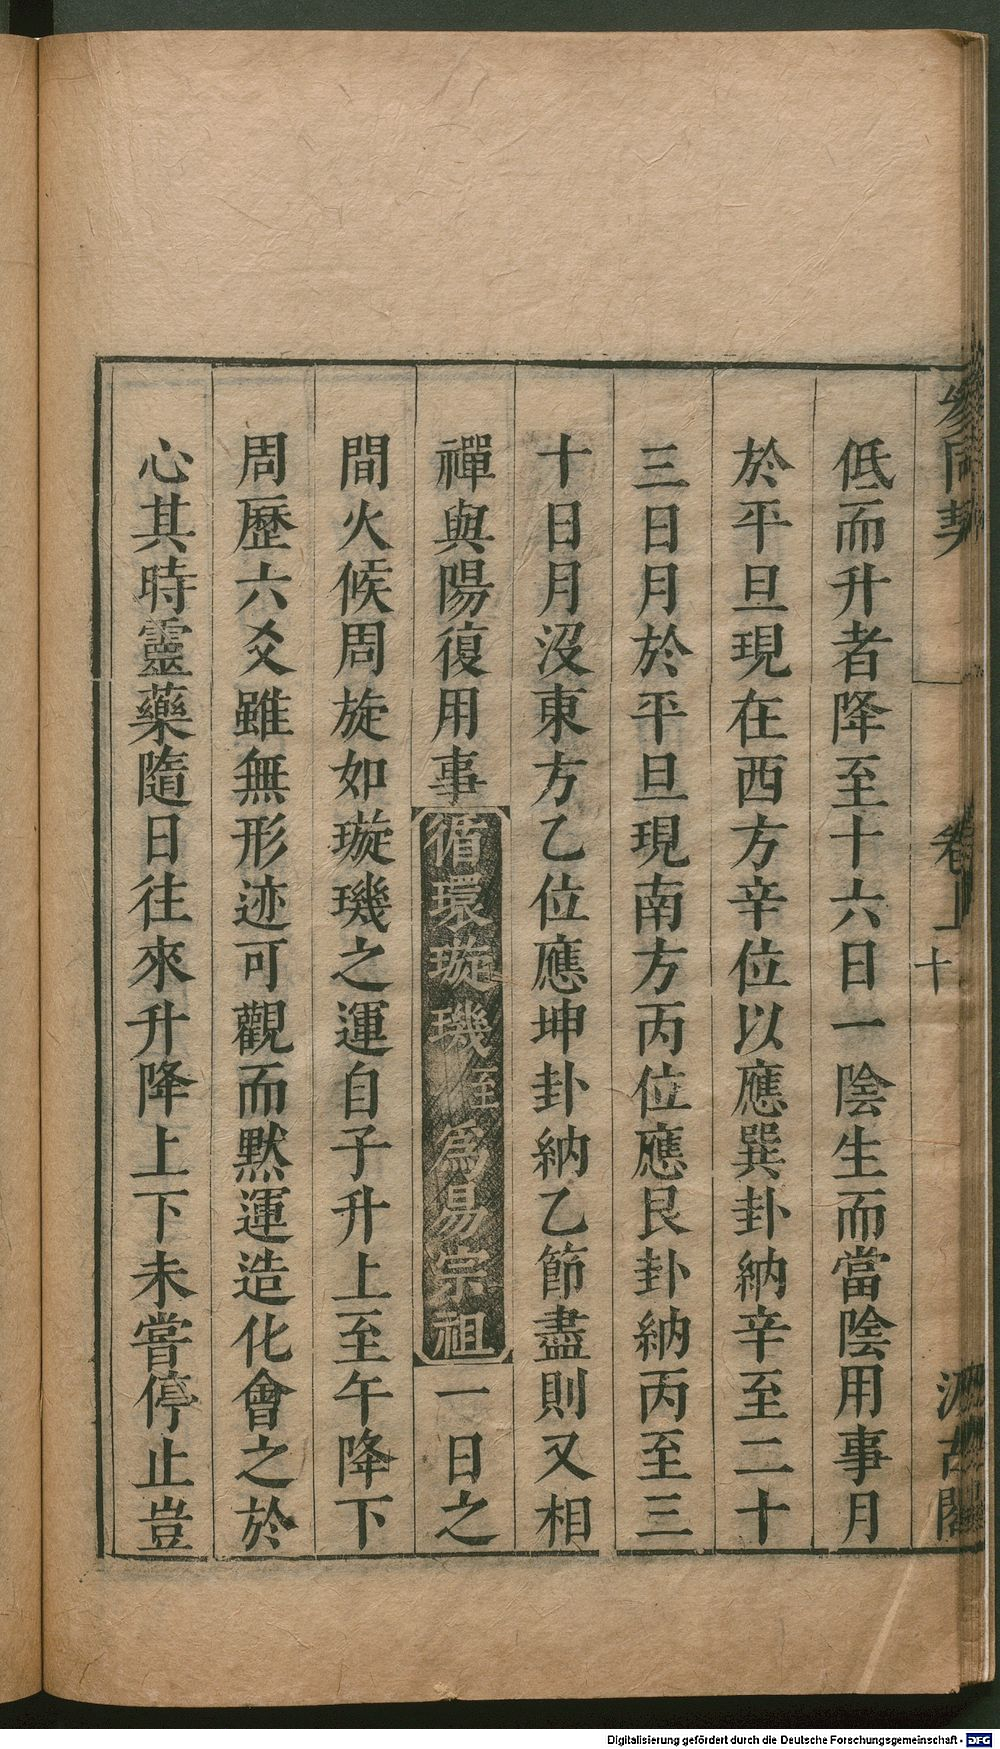 參同契 卷上 十 汲古閣
低而升者降至十六日一陰生而當陰用事月
於平旦現在西方辛位以應巽卦納辛至二十
三日月於平旦現南方丙位應艮卦納丙至三
十日月沒東方乙位應坤卦納乙節盡則又相
禪與陽復用事循環璇璣至為易宗祖一日之
間火候周旋如璇璣之運自子升上至午降下
周歷六爻雖無形迹可觀而默運造化會之於
心其時靈藥隨日往來升降上下未嘗停止豈
Digitalisierung gefördert durch die Deutsche Forschungsgemeinschaft - DFG